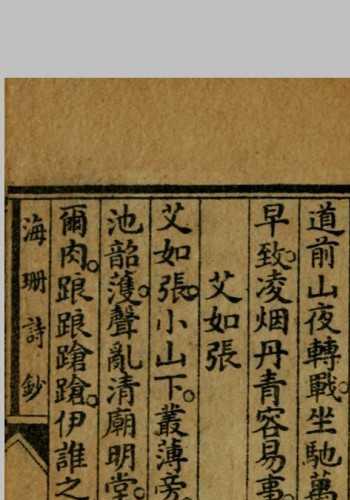 道前山夜轉戰。坐馳萬
早致。凌烟丹青容易事
艾如張
艾如張。小山下。叢薄旁
池韶濩。聲亂清廟明堂。
爾肉。踉踉蹌蹌。伊誰之
海珊詩鈔